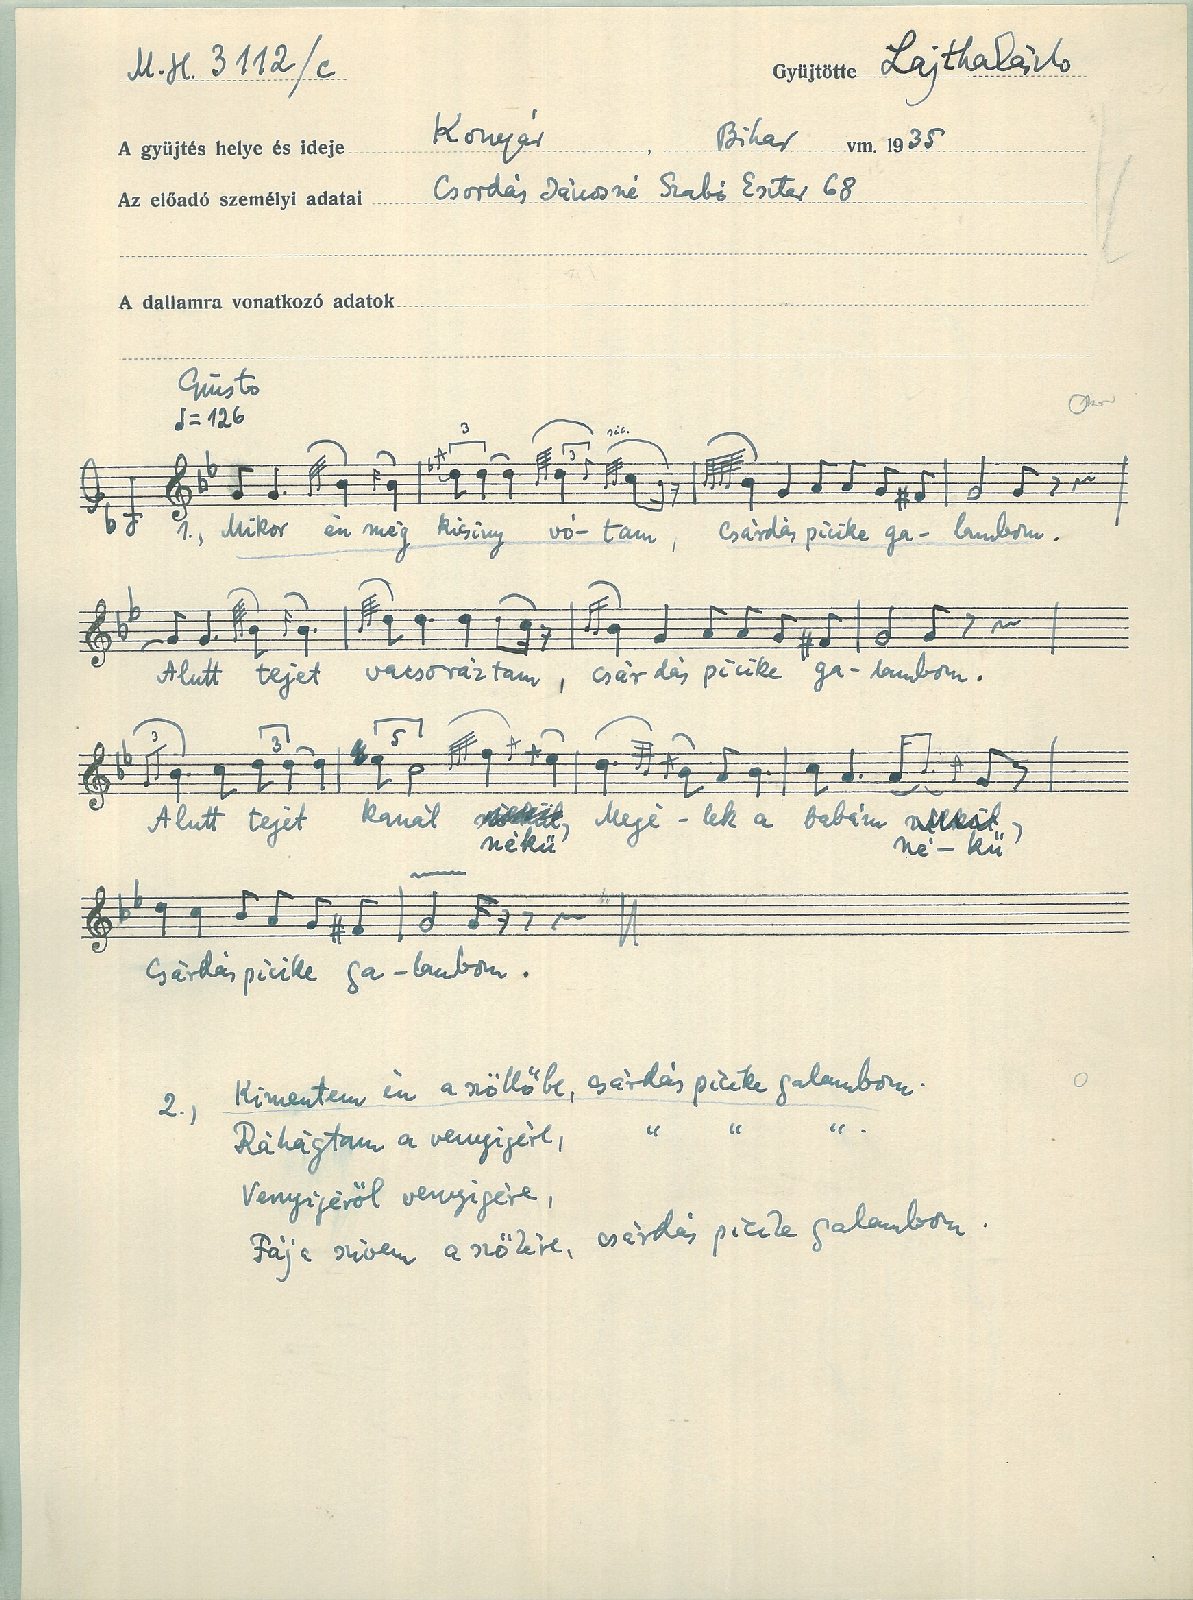 M.H. 3112/c
Gyüjtötte Lajtha László
A gyüjtés helye és ideje Konyár, Bihar vm. 1935
Az előadó személyi adatai Csordás Jánosné Szabó Eszter 68
A dallamra vonatkozó adatok
Giusto
♩=126
1., Mikor én még kicsiny vó-tam, csárdás picike ga-lambom.
Alutt tejet vacsoráztam, csárdás picike ga-lambom.
Alutt tejet kanál nékü, Megé-lek a babám né-kü,
Csárdás picike ga-lambom.
2., Kimentem én a szöllőbe, csárdás picike galambom.
Ráhágtam a venyigére, " " ".
Venyigéről venyigére,
Fája szivem a szőkére, csárdás picike galambom.